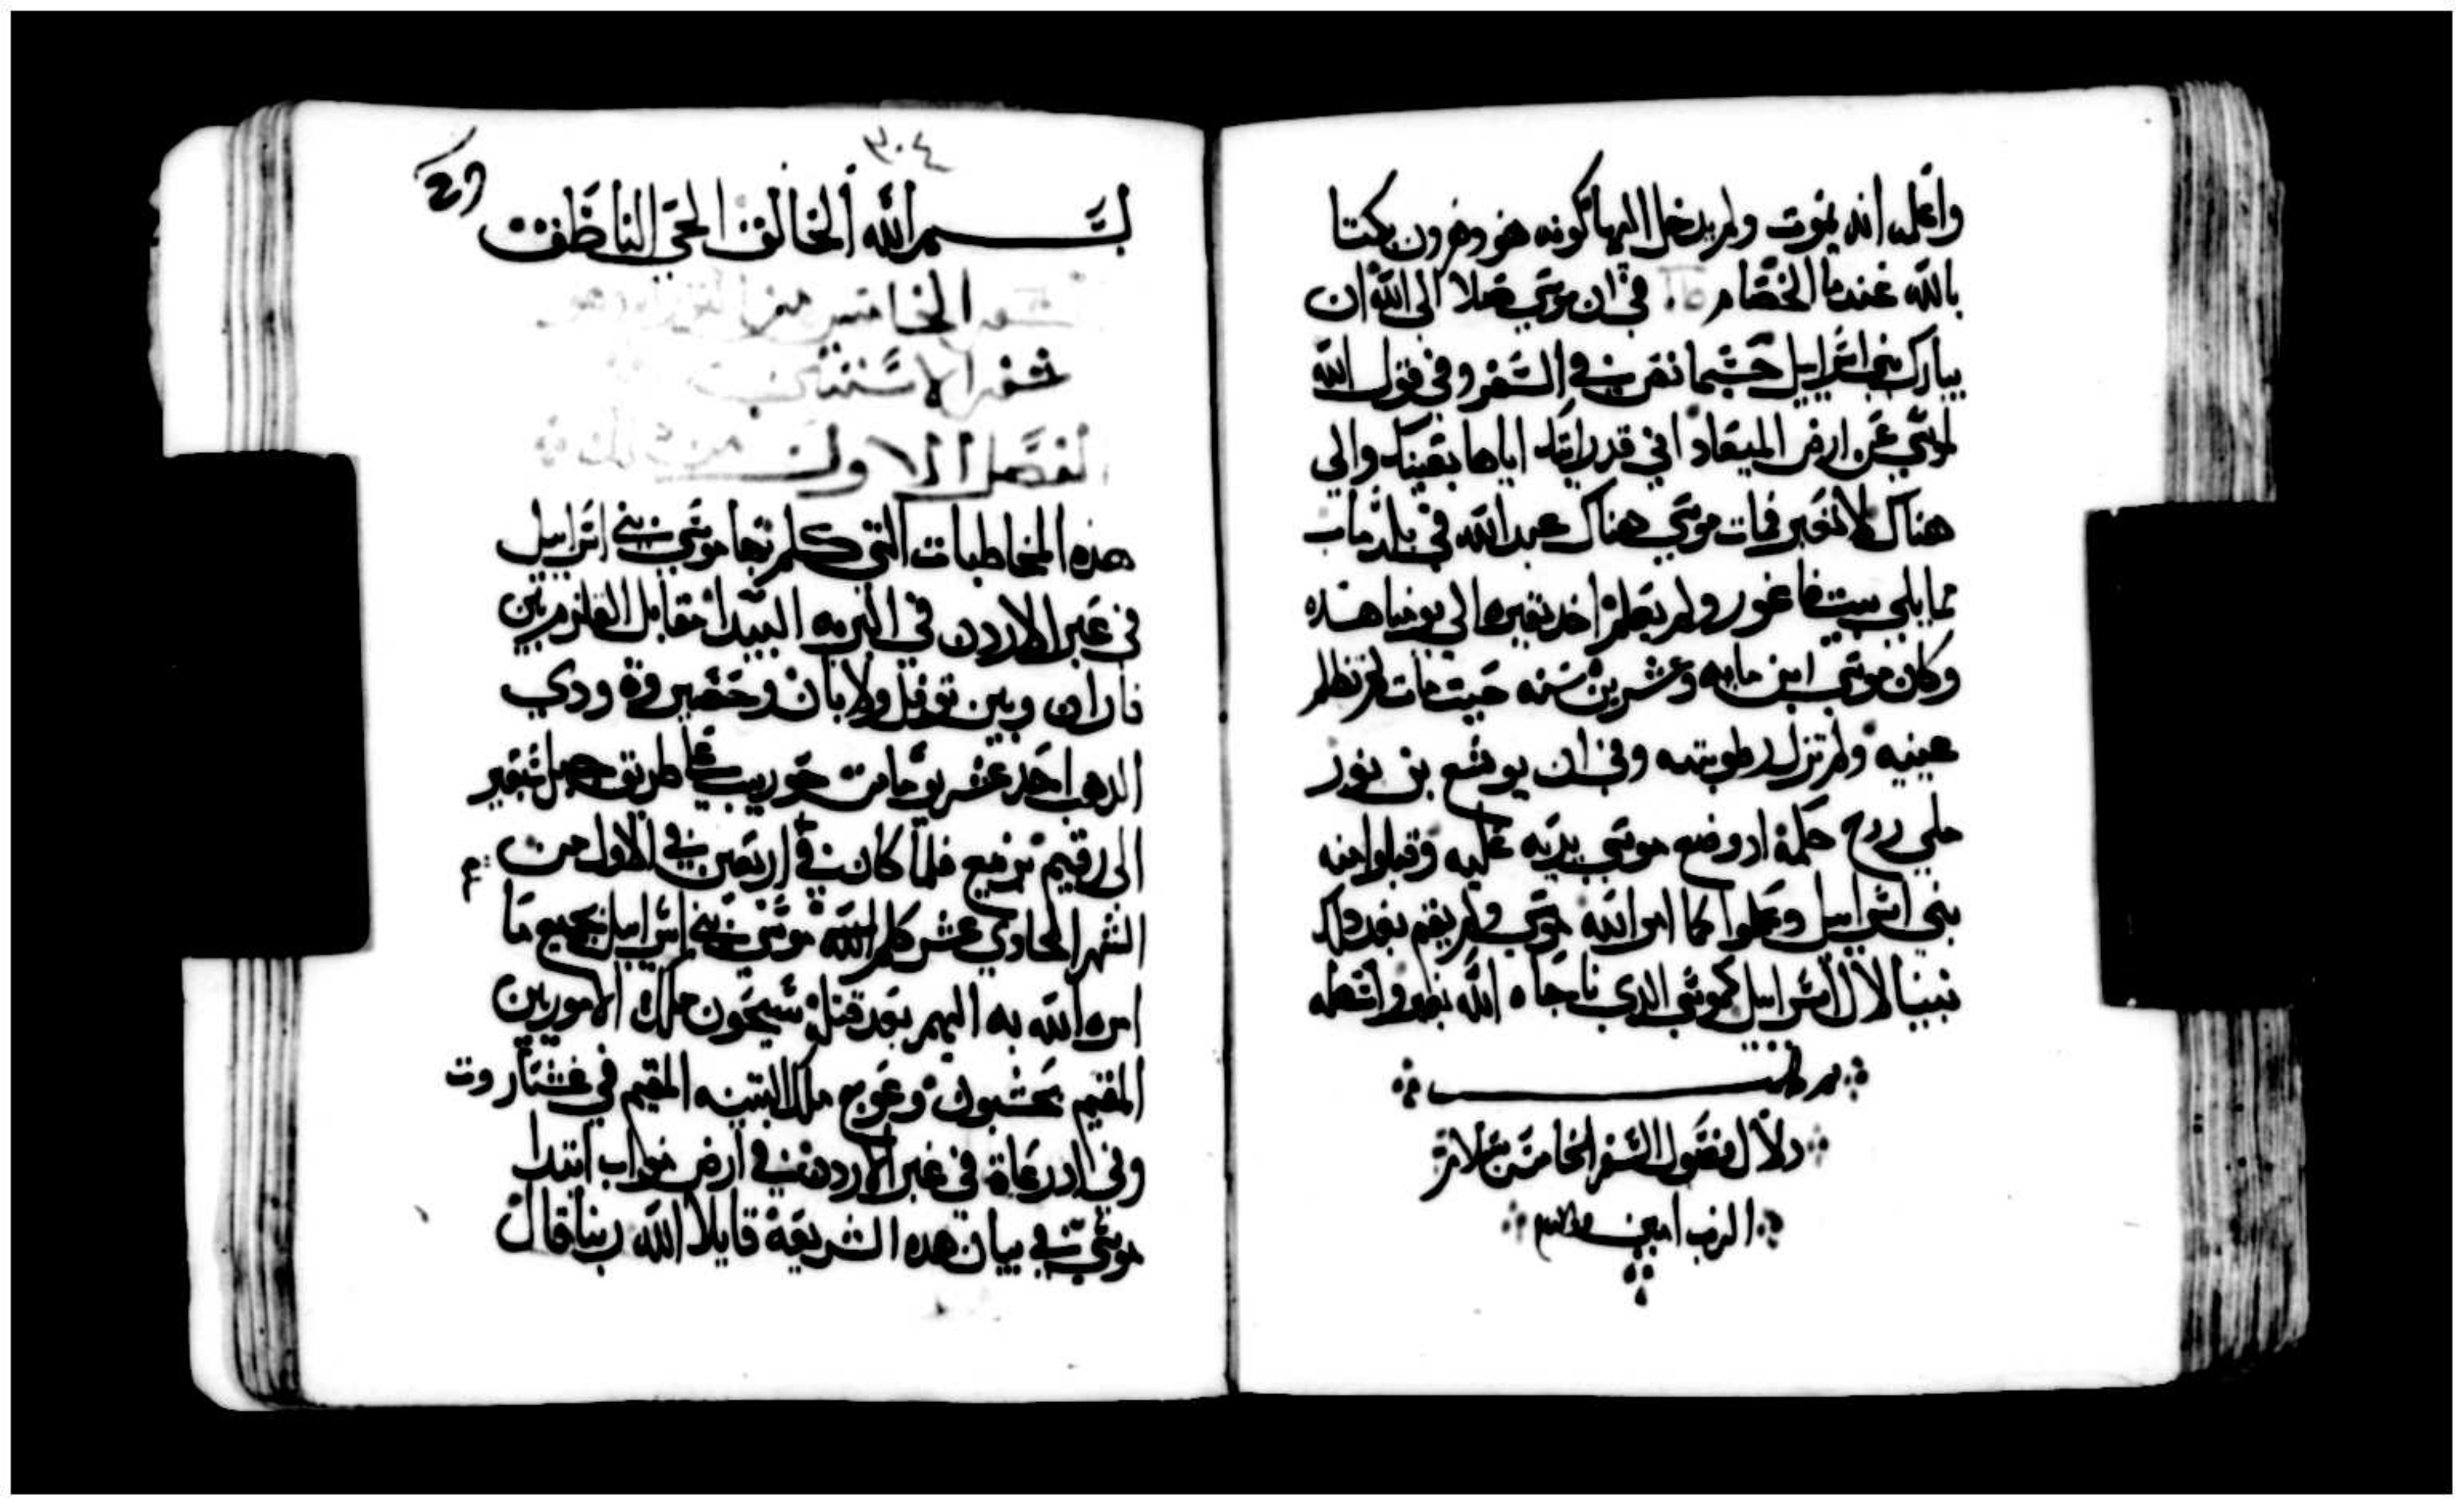 واعلمه انه يموت ولم يدخل اليها كونه هو وهرون نكتا
بالله عندما الخصام في ان موسى صلا الى الله ان
يبارك بني اسراييل حسبما نص في السفر وفي قول الله
لموسى عن ارض الميعاد اني قد رايتك اياها بعينك والى
هناك لا تعبر فمات موسى هناك عبد الله في بلد ماب
مما يلي بيت فاغور ولم يعلم احد بقبره الى يومنا هذه
وكان موسى ابن مايه وعشرين سنه حيت مات لم تظلم
عينيه ولم تزل رطوبته وفي ان يوشع بن نون
ملي روح حكمة اد وضع موسى يديه عليه وقبلوا منه
بني اسراييل وعملوا كما امر الله موسى ولم يقم بعد دلك
نبينا لال اسراييل كموسى الدي ناجاه الله
دلال فصول السفر الخامس بسلام
الرب امين
٣٠٤
بسم الله الخالق الحي الناطق
السفر الخامس من التوراه وهو
سفر الاستثنا
الفصل الاول
هده المخاطبات التي كلم بها موسى بني اسراييل
في عبر الاردن في البريه البيدا مقابل القلزم بين
فاران وبين توفل ولابان وحضيروة ودي
الدهب احد عشر يوما من حوريب على طريق جبل سعير
الى رقيم برنيع فلما كان في اربعين في الاول من
الشهر الحادي عشر كلم موسى بني اسراييل بجميع ما
امره الله به اليهم بعد قتله سيحون ملك الاموريين
المقيم بحشبون وعوج ملك البتنيه المقيم في عشتاروت
وفي ادرعاة في عبر الاردن في ارض مواب ابتدا
موسى في بيان هده الشريعة قايلا الله ربنا قال